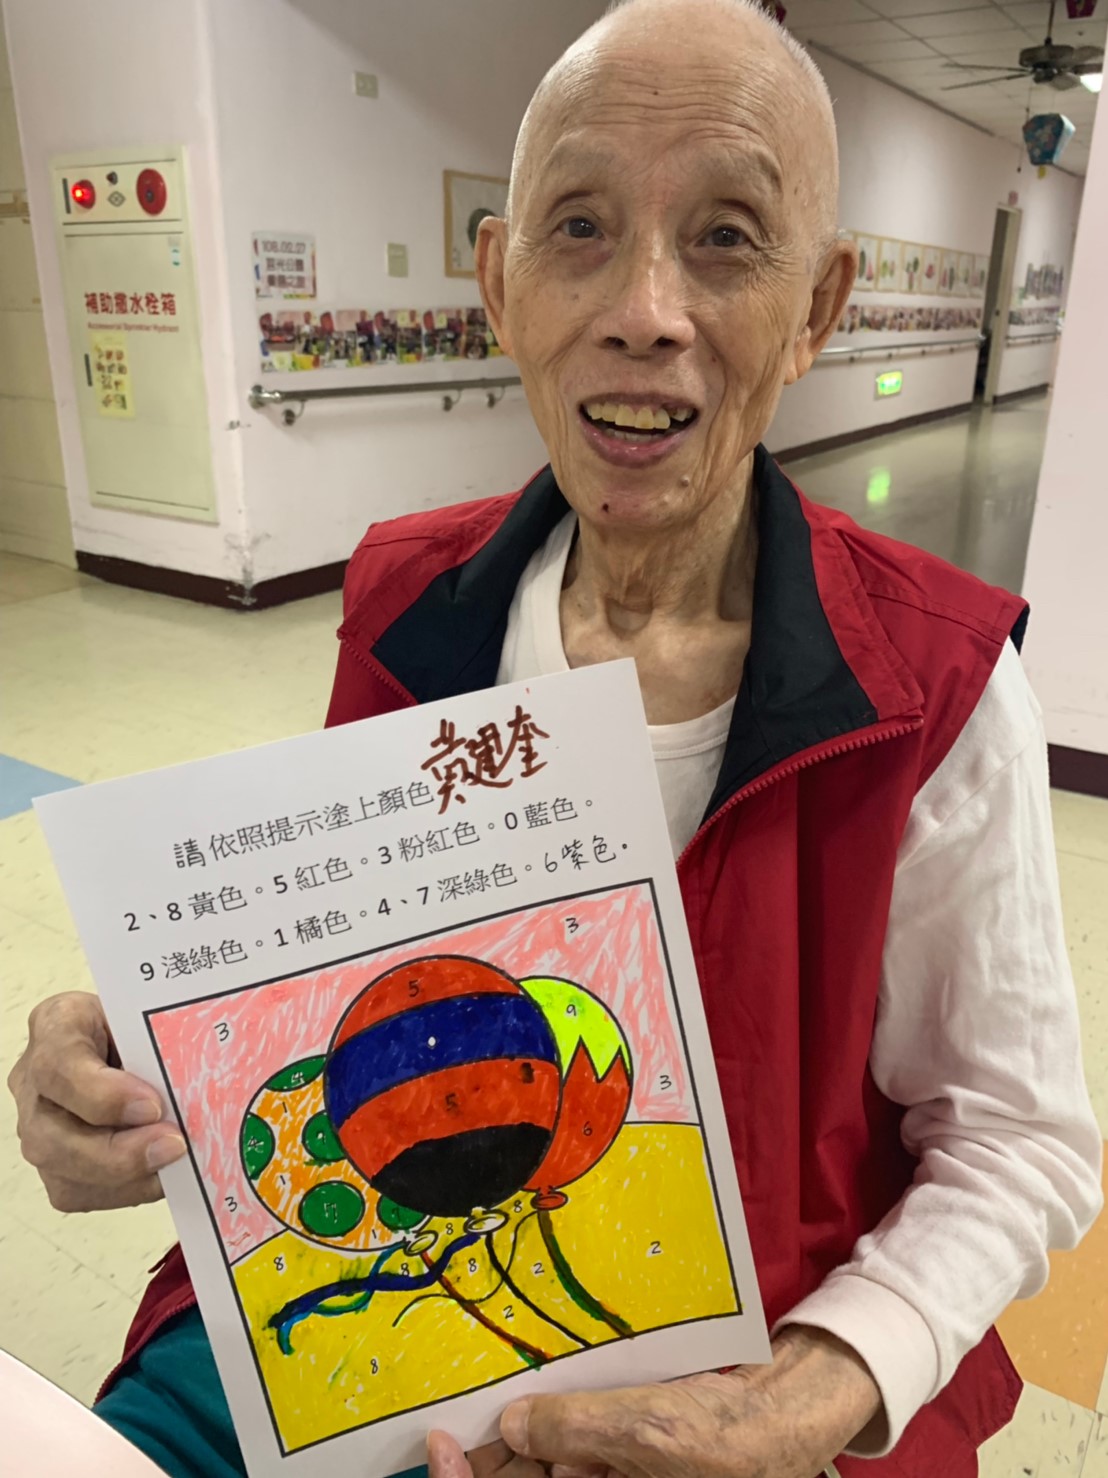 補助撒水栓箱
黃建奎
請依照提示塗上顏色
2、8黃色。5紅色。3粉紅色。0藍色。
9淺綠色。1橘色。4、7深綠色。6紫色。
3
5
9
3
3
1
5
6
1
3
1
8
8
8
8
8
2
2
2
8